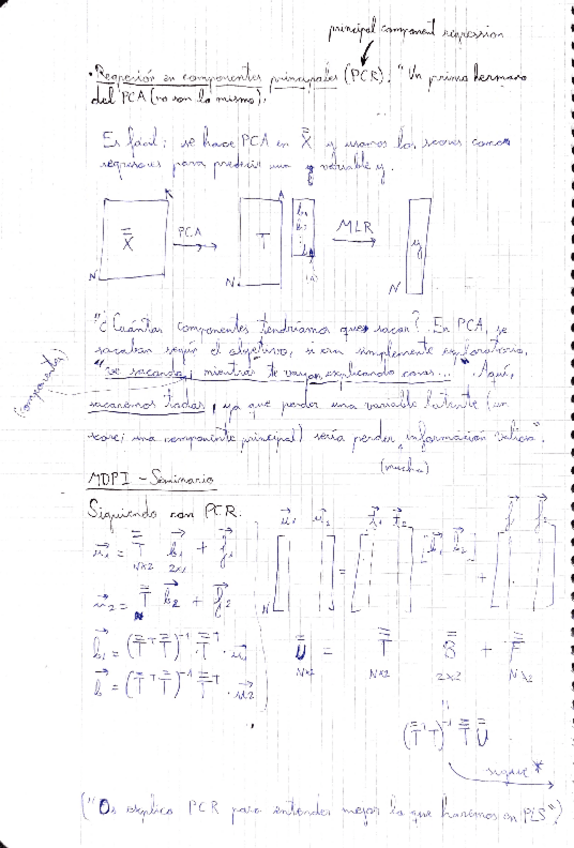 principal component regression
• Regresión en componentes principales (PCR). "Un primo hermano
del PCA (no son lo mismo).
Es fácil: se hace PCA en X̿ y usamos los scores como
regresores para predecir una variable y.
K
A
X̿
PCA
T
b₁
b₂
⋮
MLR
y
N
N
N
"¿Cuántas componentes tendríamos que sacar? En PCA, se
sacaban según el objetivo, si era simplemente exploratorio,
"ve sacando, mientras te vayan explicando cosas..." Aquí,
(componentes)
sacaremos todas, ya que perder una variable latente (un
score; una componente principal) sería perder información valiosa".
(mucha)
MDPI - Seminario
Siguiendo con PCR.
u⃗₁ = T̿ b⃗₁ + f⃗₁
N×2 2×1
u⃗₂ = T̿ b⃗₂ + f⃗₂
N
b⃗₁ = (T̿ᵀT̿)⁻¹ · T̿ᵀ · u⃗₁
b⃗ = (T̿ᵀT̿)⁻¹ T̿ᵀ · u⃗₂
u⃗₁ u⃗₂ t⃗₁ t⃗₂ b⃗₁ b⃗₂ f⃗₁ f⃗₂
N = +
U̿ = T̿ B̿ + F̿
N×2 N×2 2×2 N×2
=
(T̿ᵀT)⁻¹ T̿ U̿
sigue *
("Os explico PCR para entender mejor lo que haremos en PLS")